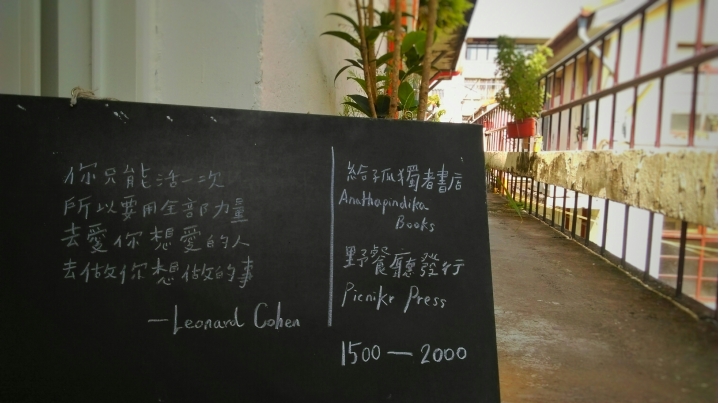 你只能活一次
所以要用全部力量
去愛你想愛的人
去做你想做的事
—Leonard Cohen
給孤獨者書店
Anathapindika
Books
野餐廳發行
Picnikr Press
1500—2000